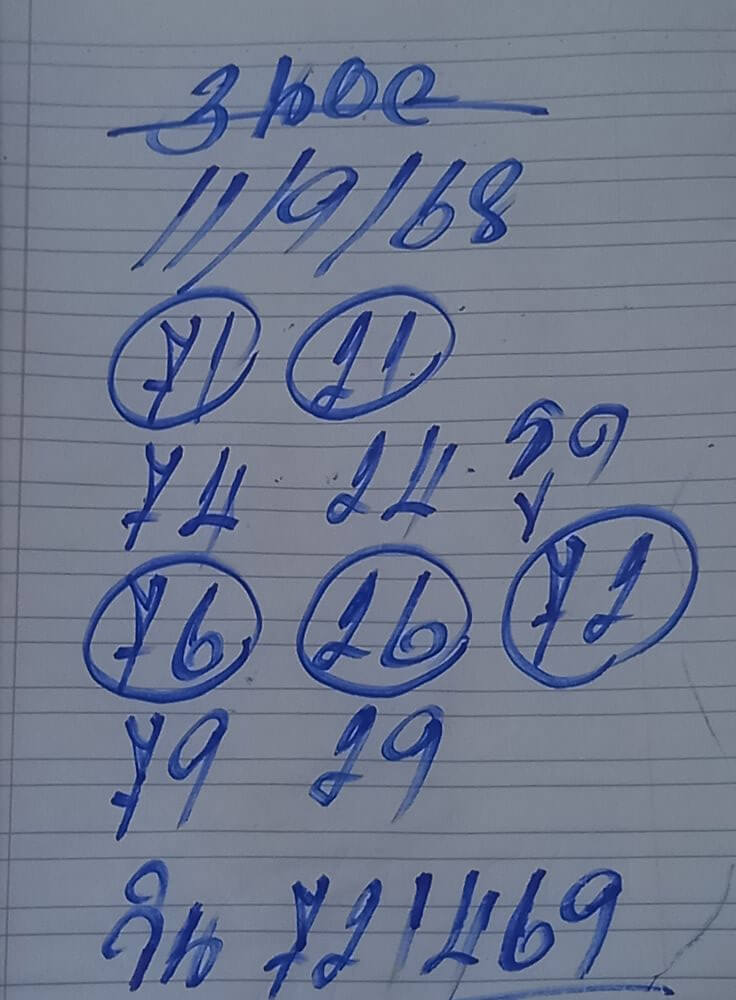 11/9/68
71 21
74 24 รูด
76 26 72
79 29
วิน 721469